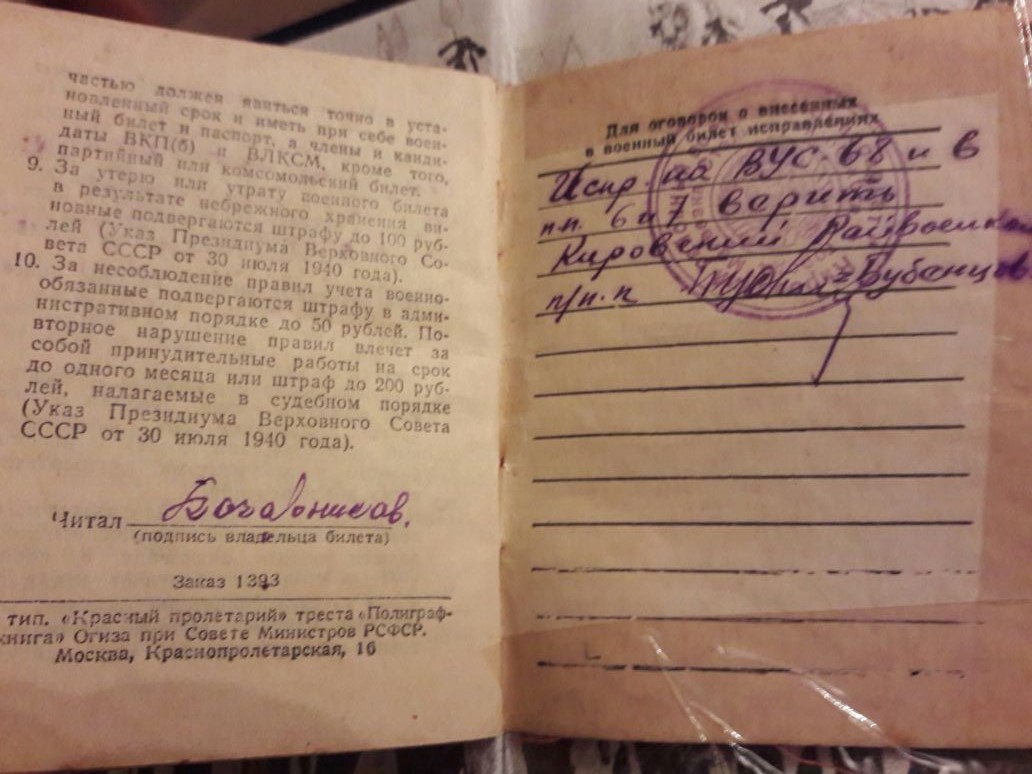 частью должен явиться точно в уста-
новленный срок и иметь при себе воен-
ный билет и паспорт, а члены и канди-
даты ВКП(б) и ВЛКСМ, кроме того,
партийный или комсомольский билет.
9. За утерю или утрату военного билета
в результате небрежного хранения ви-
новные подвергаются штрафу до 100 руб-
лей (Указ Президиума Верховного Со-
вета СССР от 30 июля 1940 года).
10. За несоблюдение правил учета военно-
обязанные подвергаются штрафу в адми-
нистративном порядке до 50 рублей. По-
вторное нарушение правил влечет за
собой принудительные работы на срок
до одного месяца или штраф до 200 руб-
лей, налагаемые в судебном порядке
(Указ Президиума Верховного Совета
СССР от 30 июля 1940 года).
Читал
(подпись владельца билета)
Заказ 1393
тип. «Красный пролетарий» треста «Полиграф-
книга» Огиза при Совете Министров РСФСР.
Москва, Краснопролетарская, 16
Для оговорок о внесенных
в военный билет исправлениях
Испр. на ВУС-68 и в
п.п. 6 и 7 верить
Кировский Райвоенком
п/п-п Бубенцов